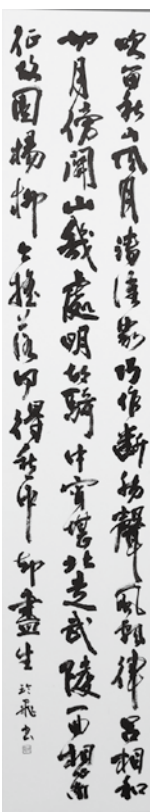 吹笛秋山風月清誰家巧作斷腸聲風飄律呂相和
切月傍關山幾處明胡騎中宵堪北走武陵一曲想南
征故園楊柳今搖落何得愁中却盡生 飛書